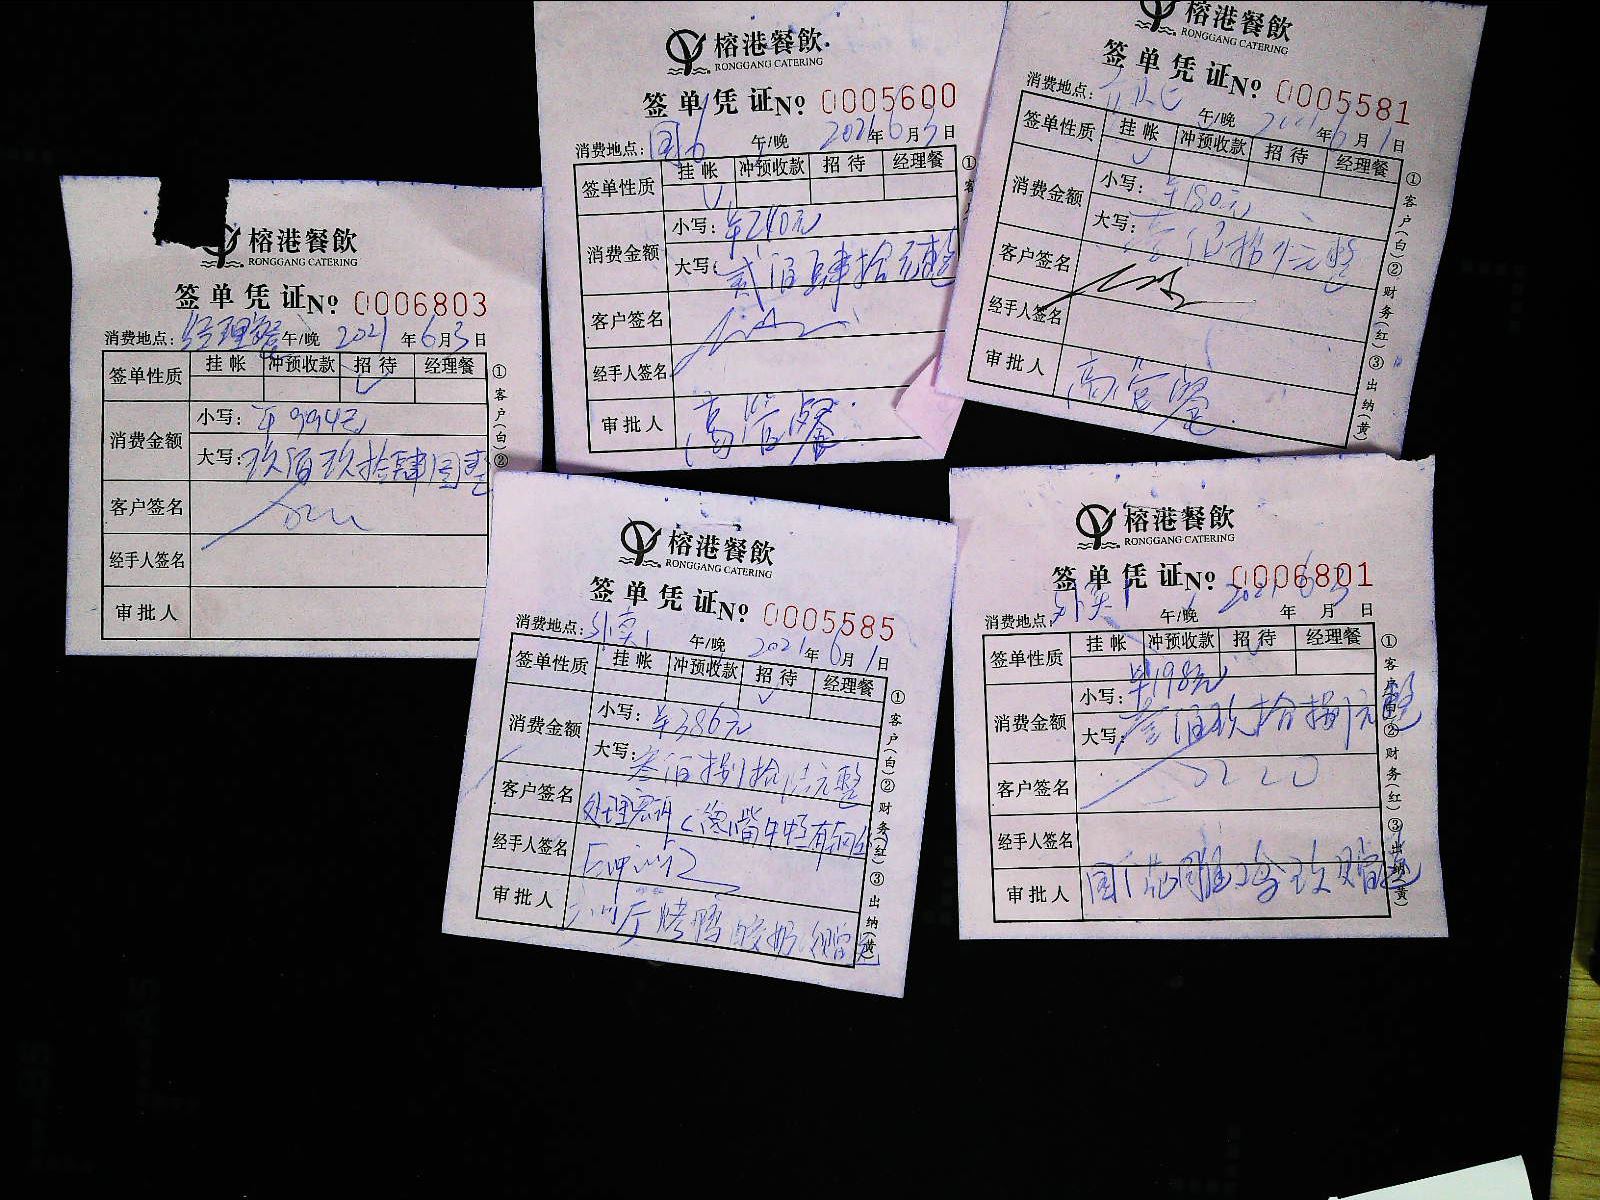 榕港餐飲
RONGGANG CATERING
签单凭证№ 0006803
消费地点: 经理餐 午/晚 2021年6月3日
签单性质 挂帐 冲预收款 招待 经理餐
消费金额
小写: 994元
大写: 玖佰玖拾肆圆整
客户签名
经手人签名
审批人
①客户(白)②
榕港餐飲
RONGGANG CATERING
签单凭证№ 0005600
消费地点: 午/晚 2021年6月3日
签单性质 挂帐 冲预收款 招待 经理餐
消费金额
小写: 240元
大写: 贰佰肆拾元整
客户签名
经手人签名
审批人
①客
榕港餐飲
RONGGANG CATERING
签单凭证№ 0005581
消费地点: 午/晚 2021年6月1日
签单性质 挂帐 冲预收款 招待 经理餐
消费金额
小写: 180元
大写:
客户签名
经手人签名
审批人
①客户(白)②财务(红)③出纳(黄)
榕港餐飲
RONGGANG CATERING
签单凭证№ 0005585
消费地点: 午/晚 2021年6月1日
签单性质 挂帐 冲预收款 招待 经理餐
消费金额
小写: 386元
大写: 叁佰捌拾陆元整
客户签名 处理
经手人签名
审批人 烤鸭 酸奶
①客户(白)②财务(红)③出纳(黄)
榕港餐飲
RONGGANG CATERING
签单凭证№ 0006801
消费地点: 午/晚 2021年6月3日
签单性质 挂帐 冲预收款 招待 经理餐
消费金额
小写: 198元
大写: 佰玖拾捌元整
客户签名
经手人签名
审批人
①客户(白)②财务(红)③出纳(黄)